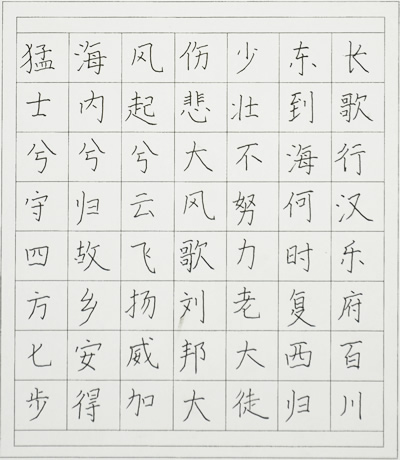 长歌行汉乐府百川
东到海何时复西归
少壮不努力老大徒
伤悲大风歌刘邦大
风起兮云飞扬威加
海内兮归故乡安得
猛士兮守四方七步